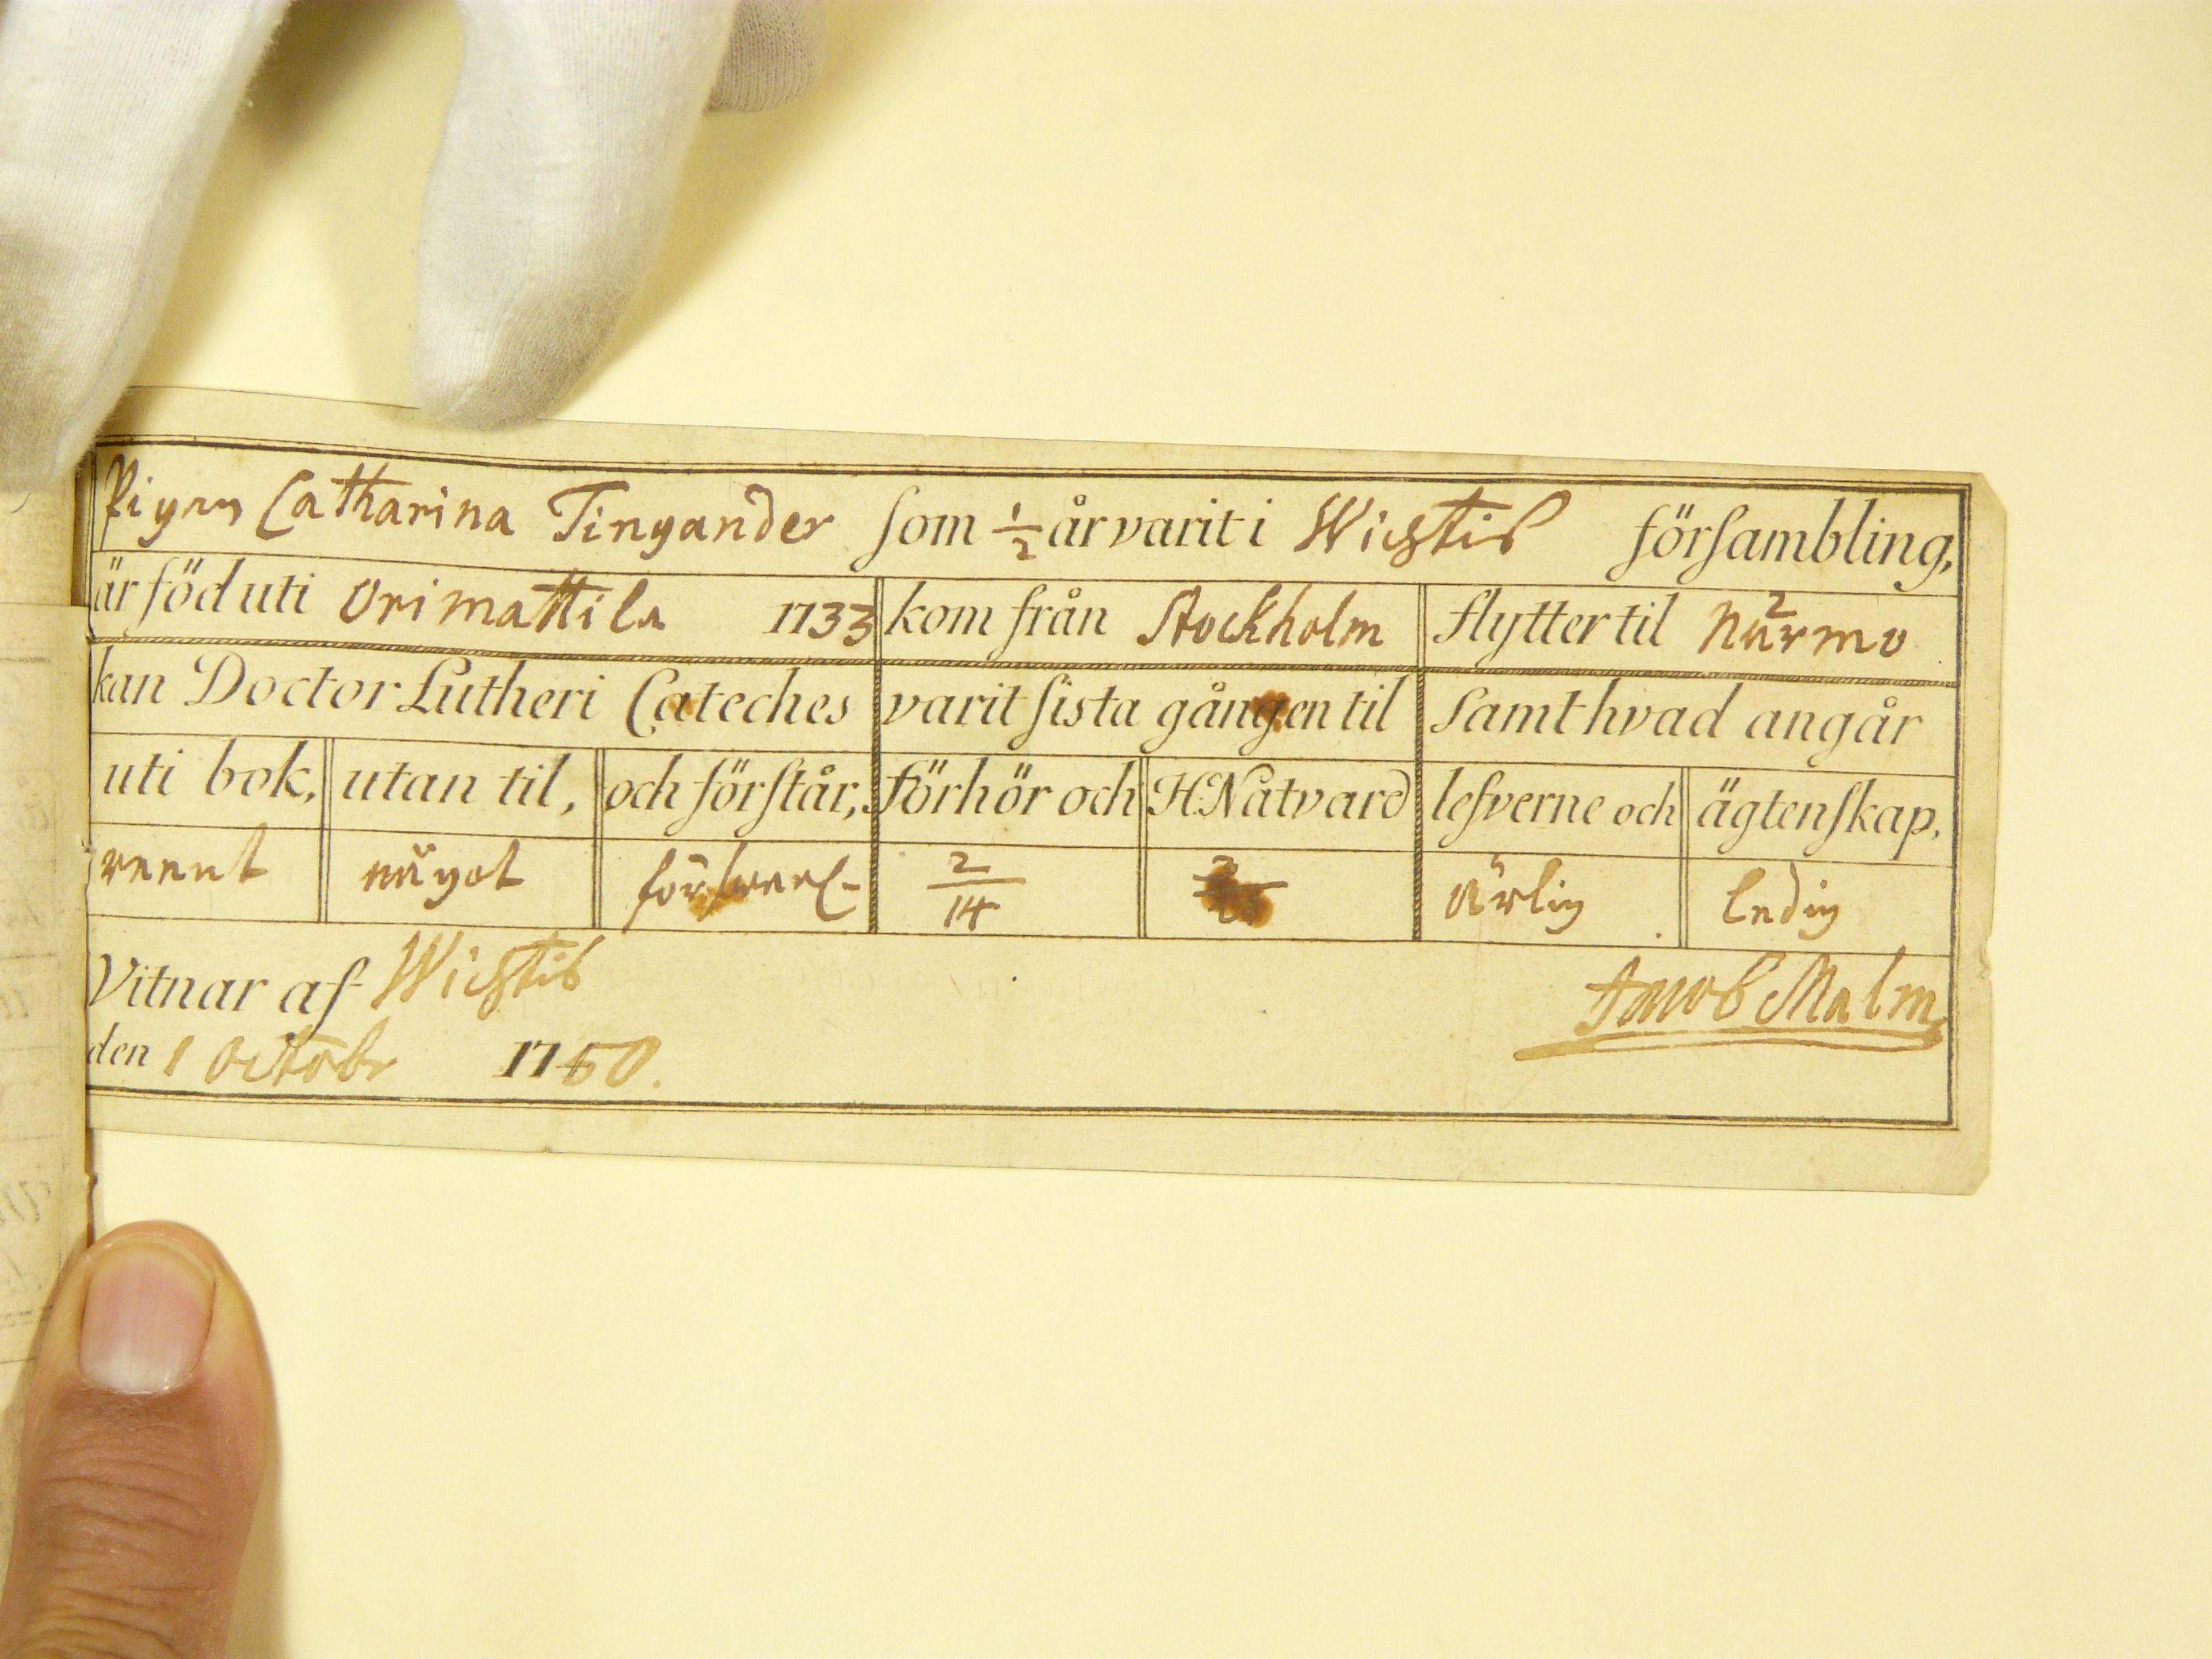 Pigan Catharina Tingander som 1/2 år varit i Wichtis försambling,
är föd uti Orimattila 1733 kom från Stockholm flytter til Nurmo
kan Doctor Lutheri Cateches varit sista gången til samt hvad angår
uti bok, utan til, och förstår, förhör och H. Natvard lefverne och ägtenskap,
reent något 2/14 ärlig ledig
Vitnar af Wichtis Jacob Malm
den 1 Octobr 1760.